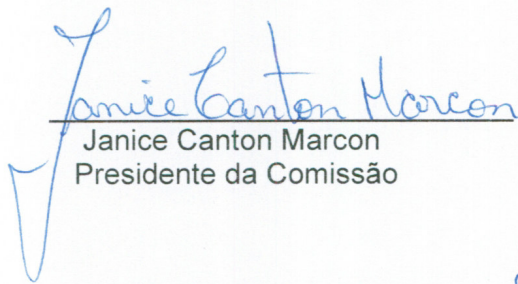 Janice Canton Marcon
Janice Canton Marcon
Presidente da Comissão